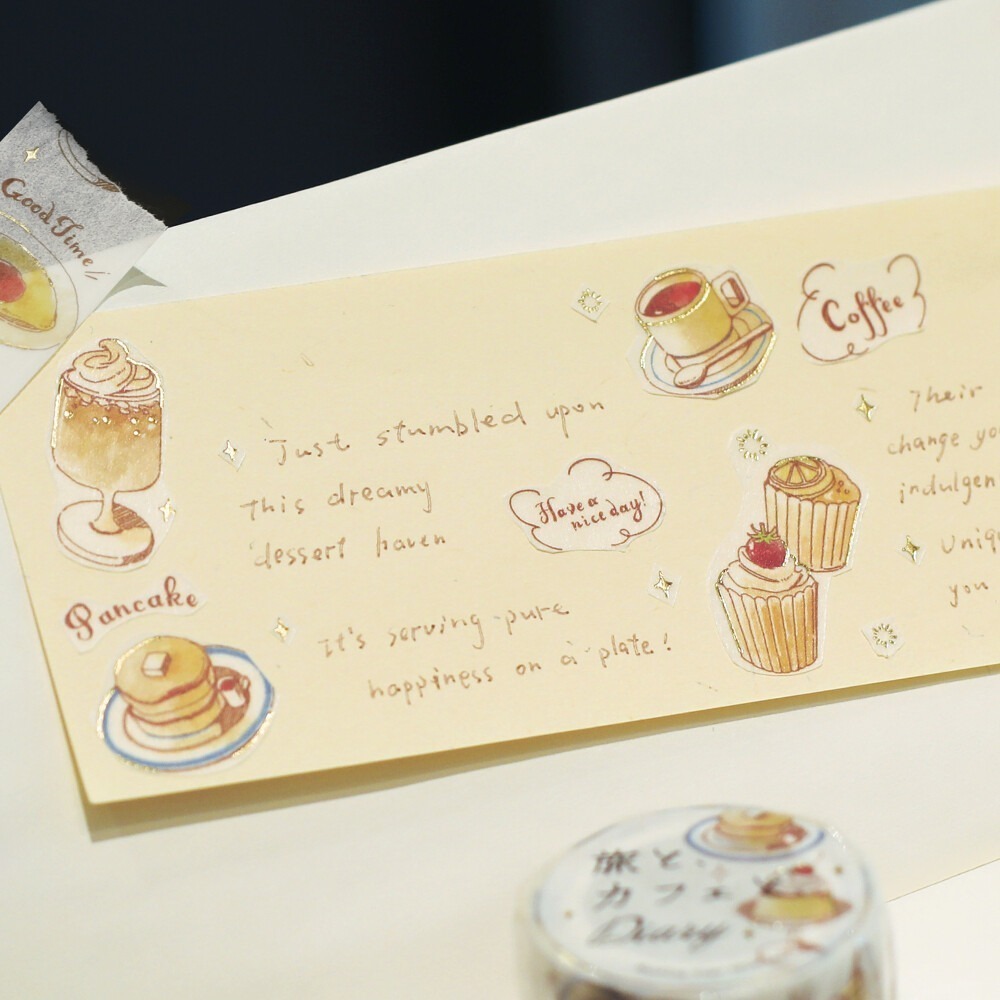 Good Time
Coffee
Just stumbled upon
this dreamy
dessert haven
Have a
nice day!
Pancake
It's serving pure
happiness on a plate!
Their
change you
indulgen
uniq
you
旅と
カフェと
Diary